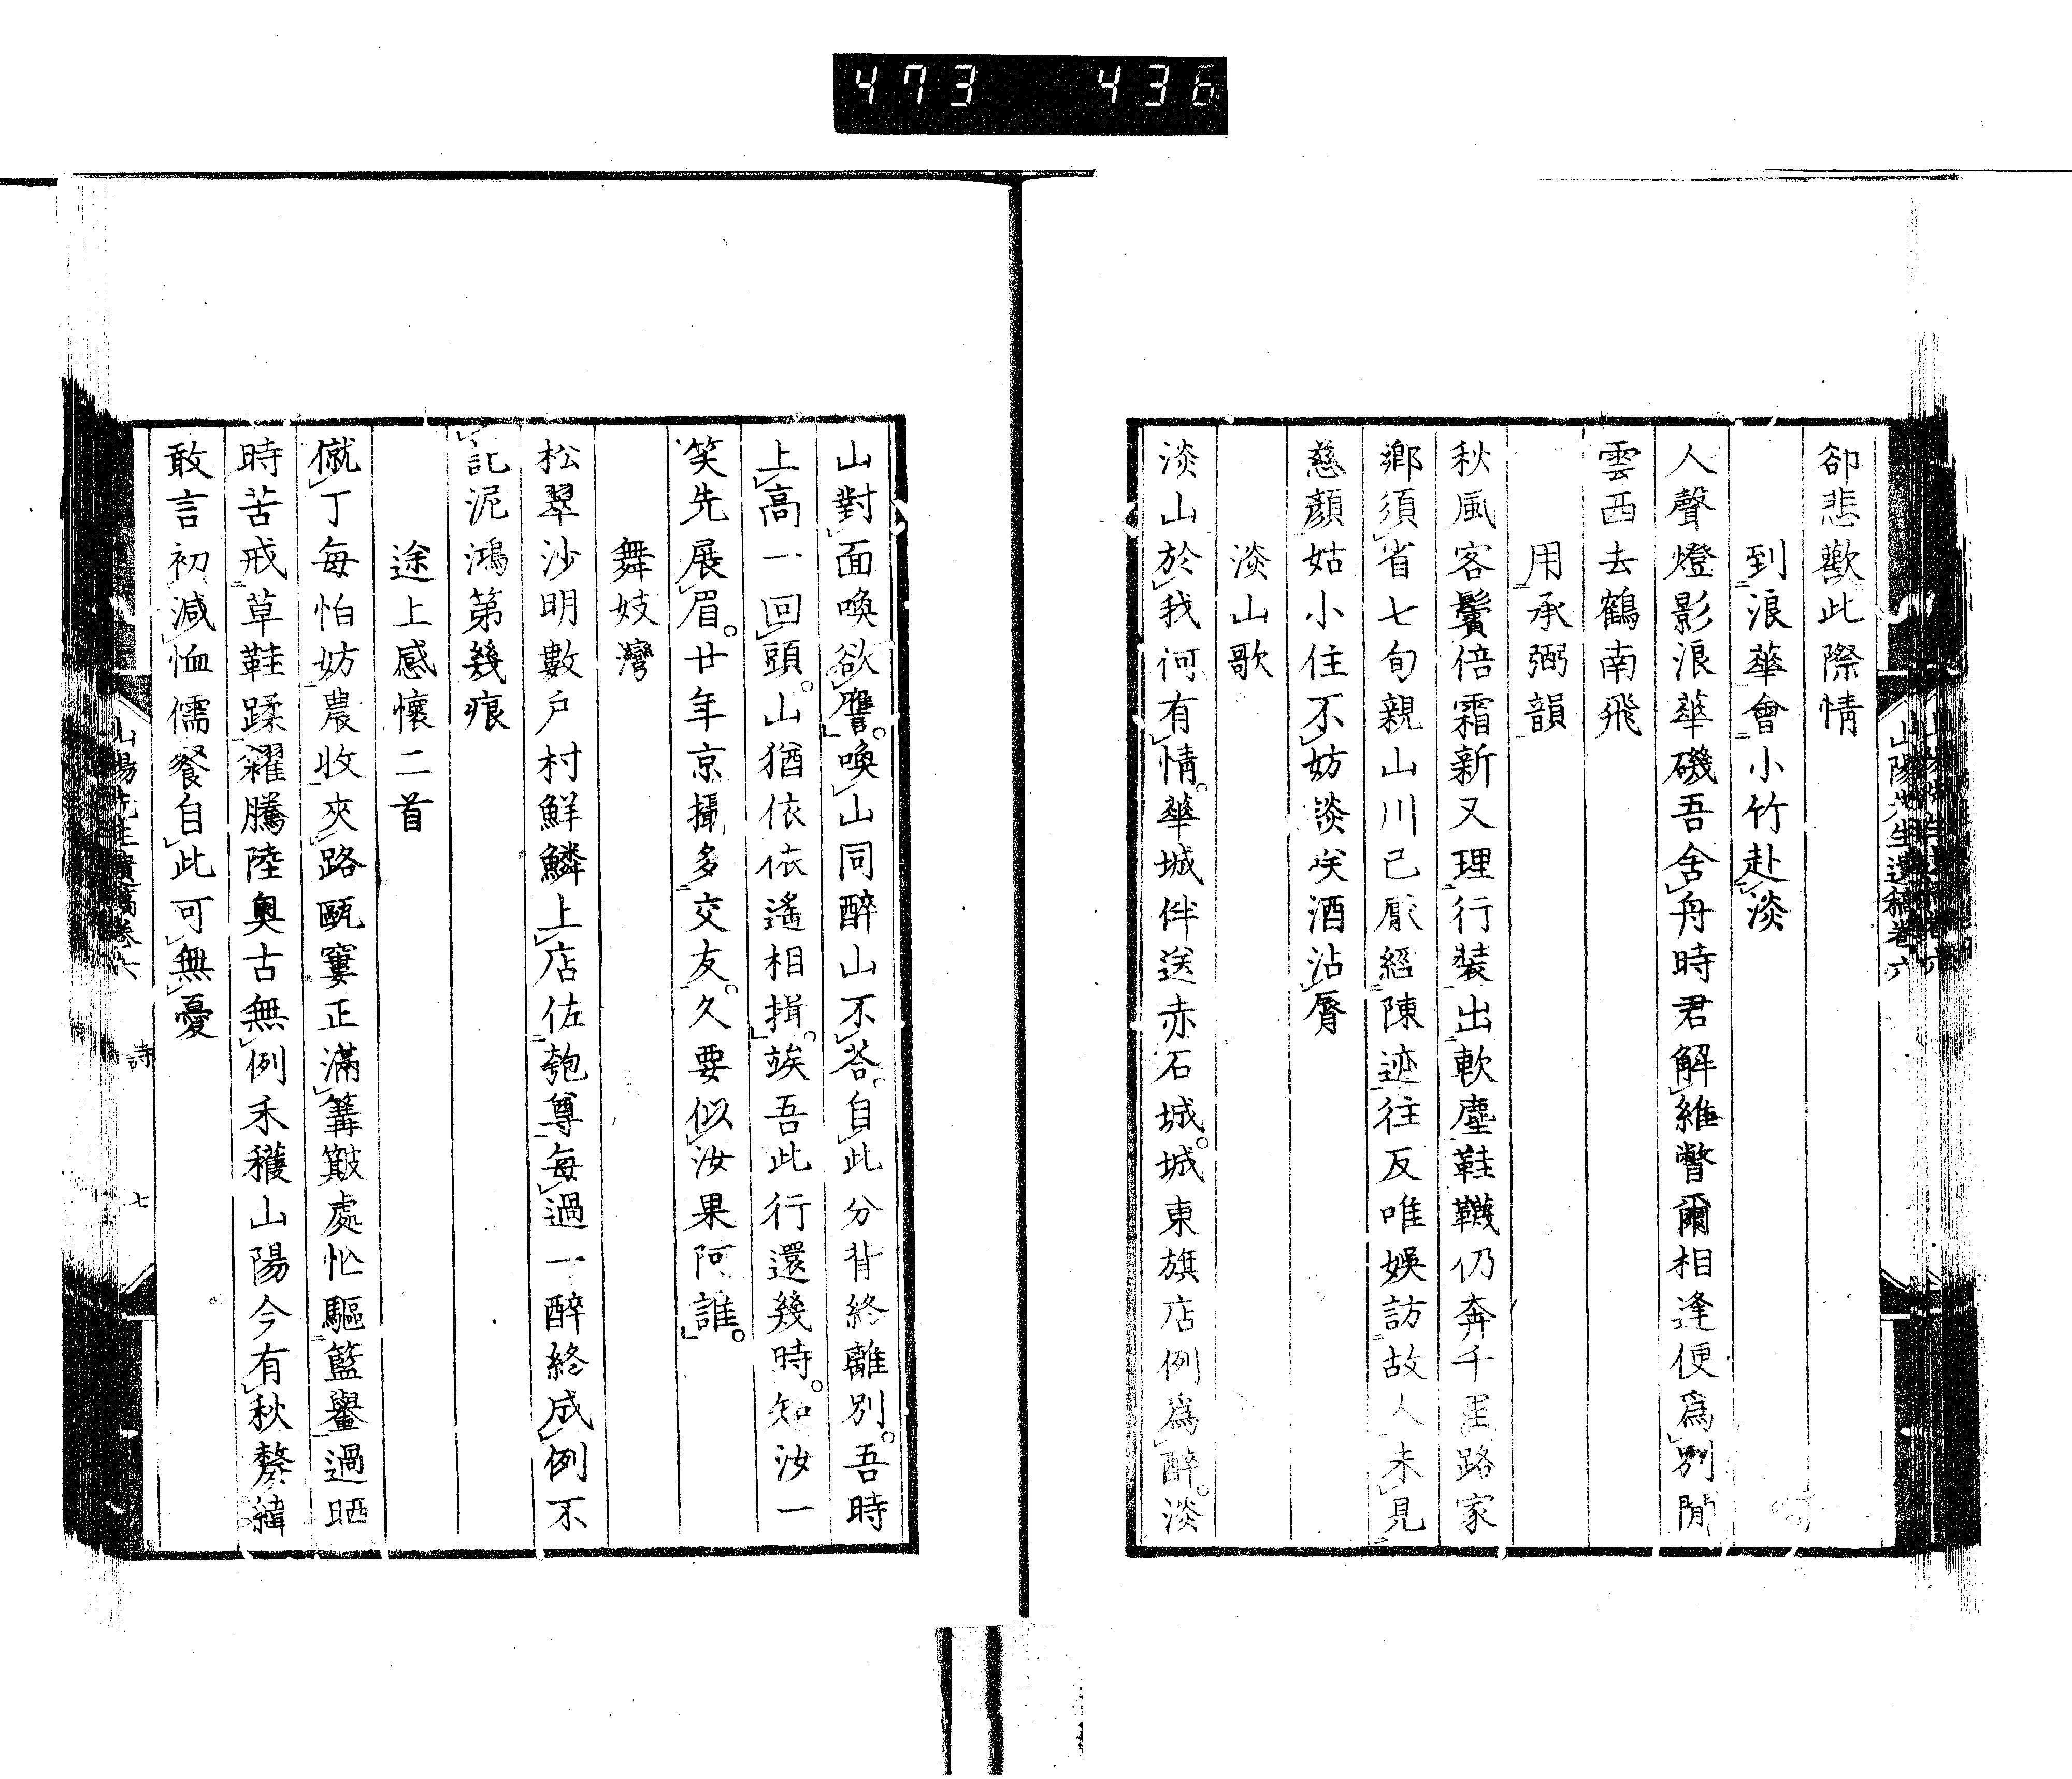 473 436
卻悲歡此際情
到浪華會小竹赴淡
人聲燈影浪華磯吾舍舟時君解維瞥爾相逢便爲別閒
雲西去鶴南飛
用承弼韻
秋風客鬢倍霜新又理行裝出軟塵鞋韈仍奔千里路家
鄕須省七旬親山川已厭經陳迹往反唯娛訪故人未見
慈顏姑小住不妨談笑酒沾脣
淡山歌
淡山於我何有情。華城伴送赤石城。城東旗店例爲醉。淡
山對面喚欲譍。喚山同醉山不荅。自此分背終離別。吾時
上高一回頭。山猶依依遙相揖。竢吾此行還幾時。知汝一
笑先展眉。廿年京攝多交友。久要似汝果阿誰。
舞妓灣
松翠沙明數戶村鮮鱗上店佐匏尊每過一醉終成例不
記泥鴻第幾痕
途上感懷二首
僦丁每怕妨農收夾路甌窶正滿篝歎處忙驅籃轝過晒
時苦戒草鞋蹂糴騰陸奧古無例禾穫山陽今有秋嫠緯
敢言初減恤儒餐自此可無憂
山陽先生遺稿卷六 詩 七